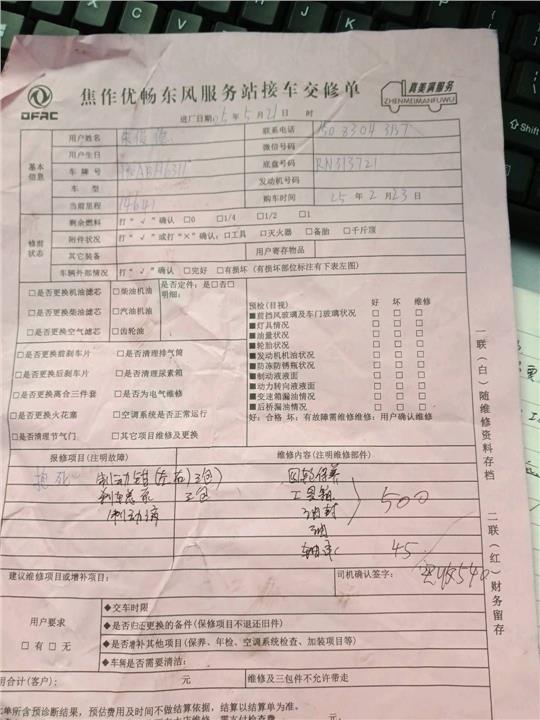 DFAC
焦作优畅东风服务站接车交修单
真美满服务
ZHENMEIMANFUWU
进厂日期: 年5月21日 时
用户姓名 联系电话
用户生日 微信号码
基本信息
车牌号 底盘号码 RN313721
车型 发动机号码
当前里程 14641 购车时间 25年2月23日
修前状态
剩余燃料 打“√”确认 □0 □1/4 □1/2 □1
附件状况 打“√”或打“×”确认: □工具 □灭火器 □备胎 □千斤顶
其它装备 用户寄存物品
车辆外部情况 打“√”确认 □完好 □有损坏 (有损坏部位标注有下表左图)
□是否更换机油滤芯 □柴油机油 是否定件: 是□否□
明细:
□是否更换柴油滤芯 □汽油机油
□是否更换空气滤芯 □齿轮油
□是否更换前刹车片 □是否清理排气筒
□是否更换后刹车片 □是否清理尿素箱
□是否更换离合三件套 □是否为电气维修
□是否更换火花塞 □空调系统是否正常运行
□是否清理节气门 □其它项目维修及更换
预检(目视) 好 坏 维修
■前挡风玻璃及车门玻璃状况 □ □ □
■灯具情况 □ □ □
■油量状况 □ □ □
■轮胎状况 □ □ □
■发动机机油状况 □ □ □
■防冻防锈瓶状况 □ □ □
■制动液液面 □ □ □
■动力转向液液面 □ □ □
■变速箱漏油情况 □ □ □
■后桥漏油情况 □ □ □
好: 合格 坏: 有故障需维修维修: 用户确认维修
报修项目(注明故障) 维修内容(注明维修部件)
(左右)三包 四轮保养
刹车总泵 三包
制动液 油封
500
45
建议维修项目或增补项目: 司机确认签字:
540
用户要求
□有 □无
◆交车时限
◆是否归还更换的备件(保修项目不退还旧件)
◆是否增补其他项目(保养、年检、空调系统检查、加装项目等)
◆车辆是否需要清洁:
用合计(客户): 元 维修及三包件不允许带走
此单所含预诊断结果，预估费用及时间不做结算依据，结算以结算单为准。
一联(白)随维修资料存档
二联(红)财务留存